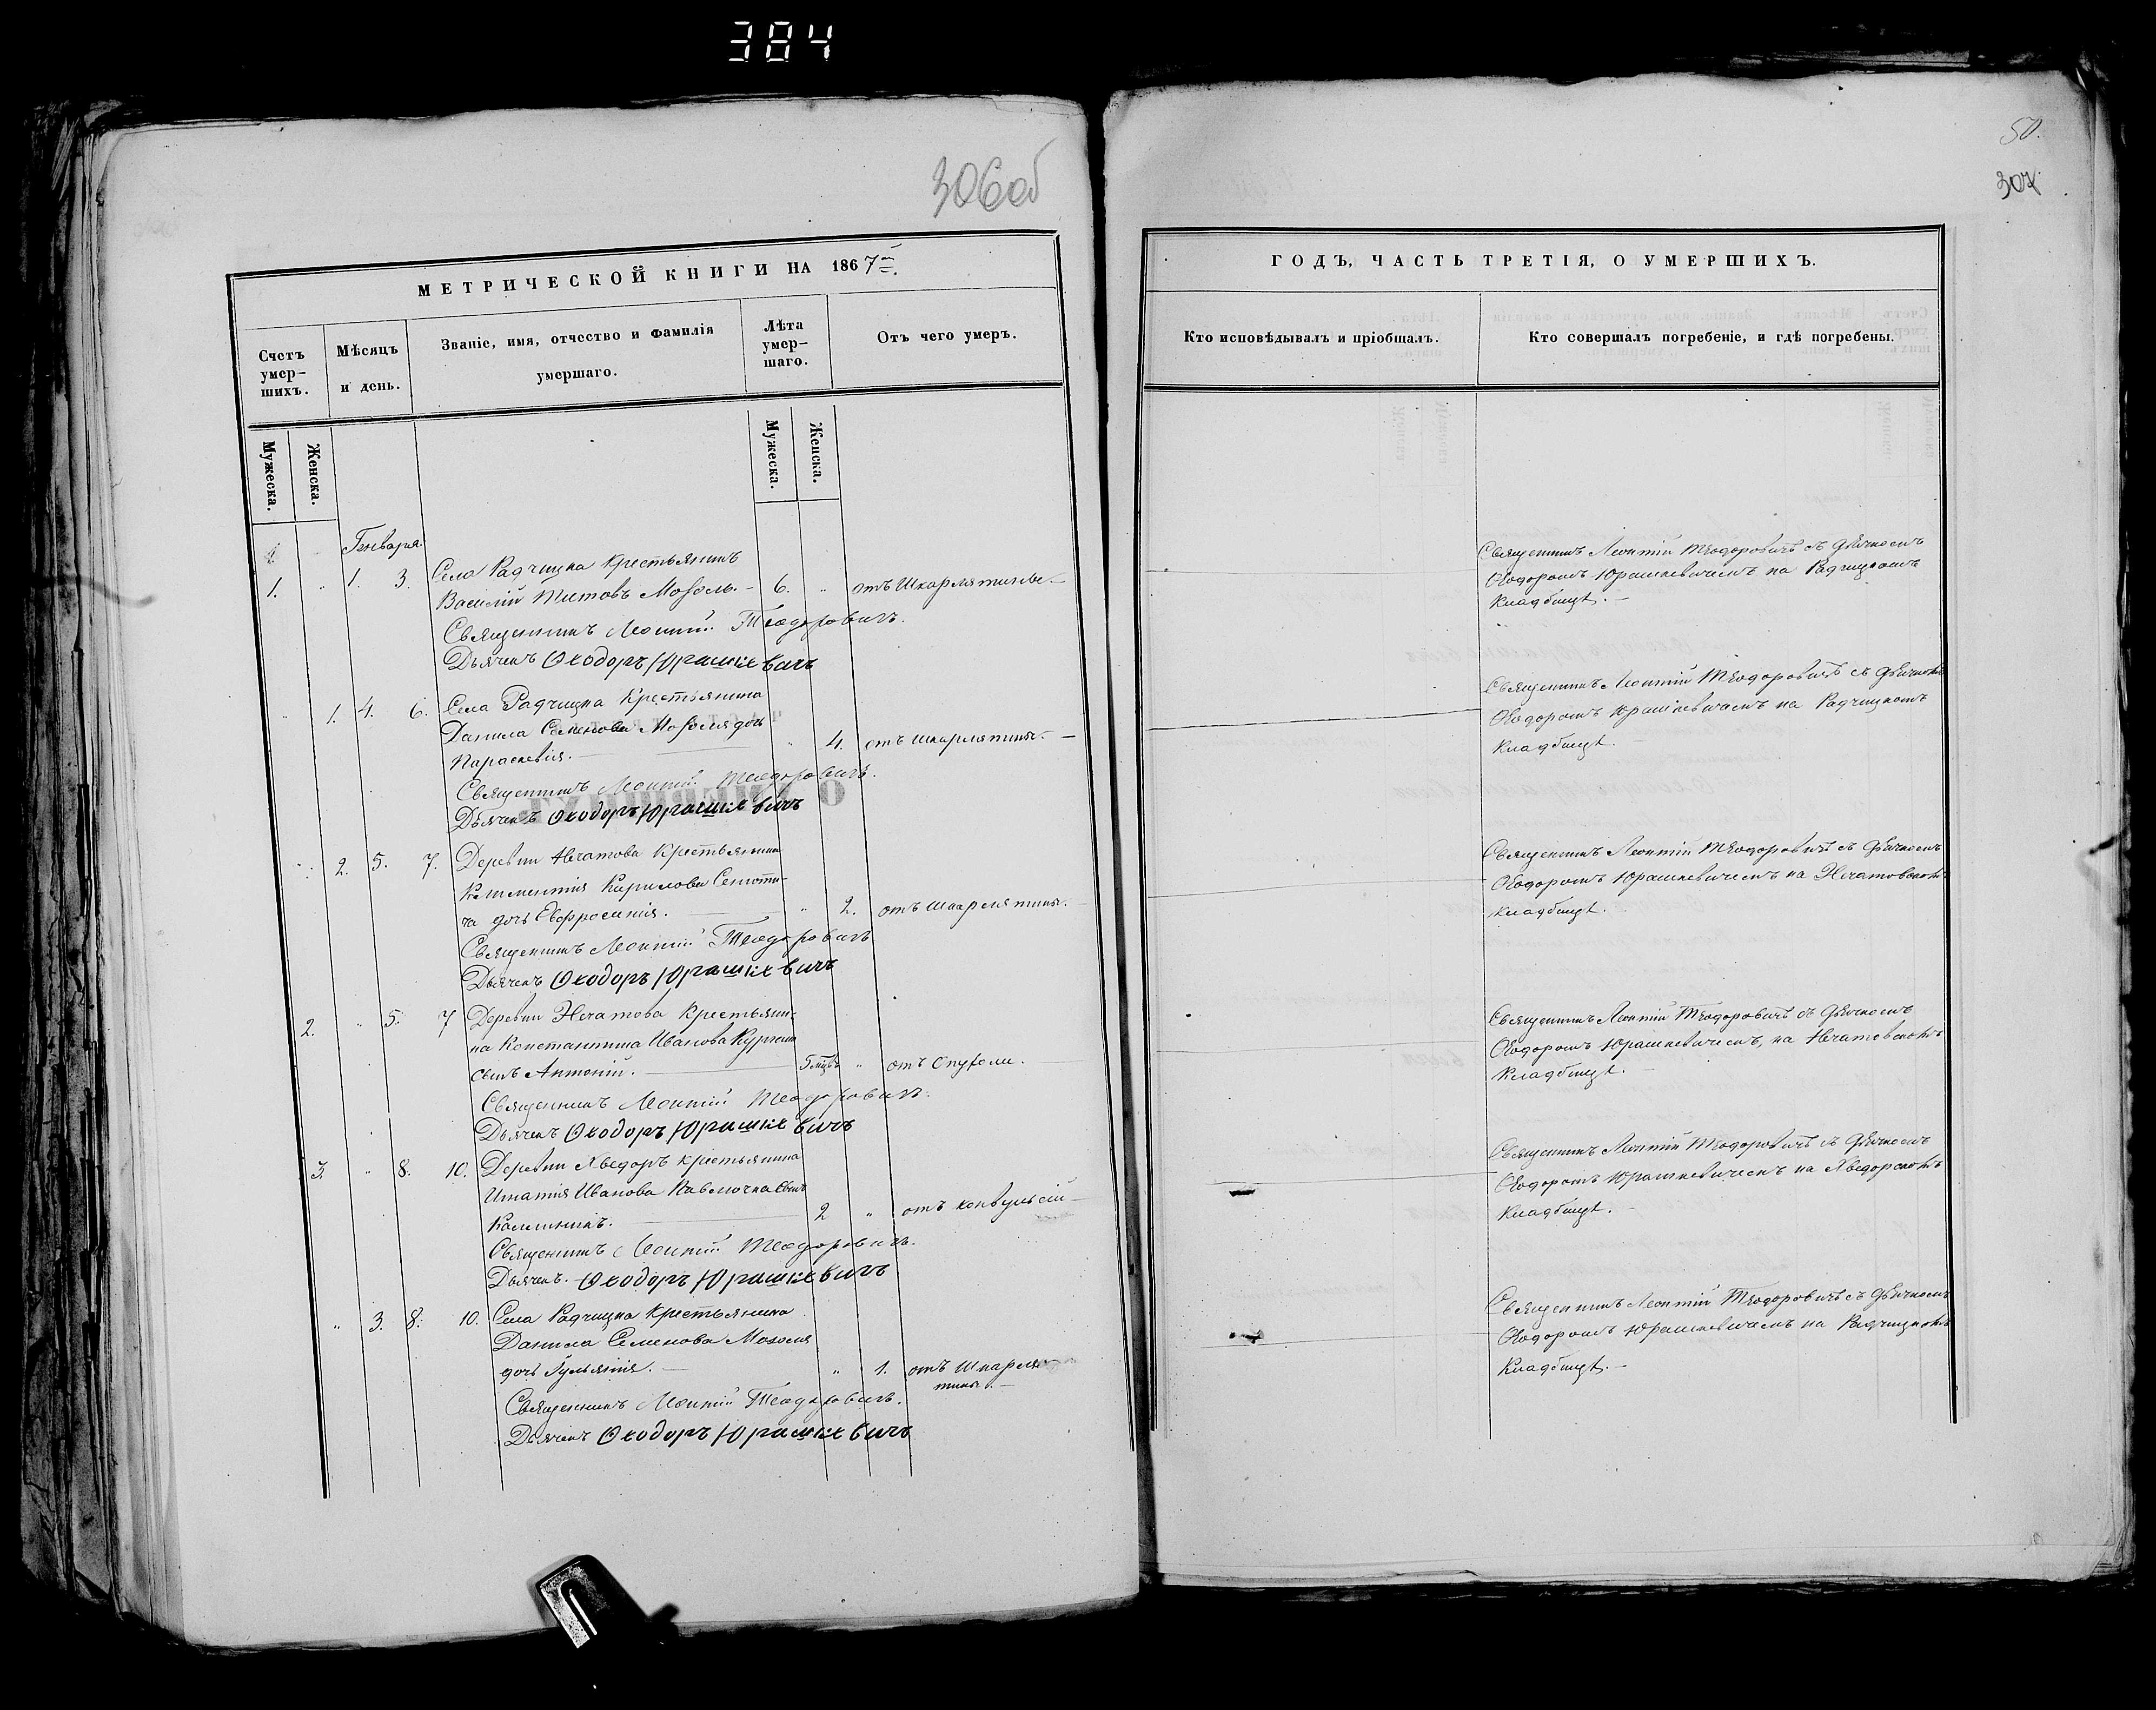 384
306об
МЕТРИЧЕСКОЙ КНИГИ НА 1867
Счетъ умер-шихъ.
Мѣсяцъ и день.
Званіе, имя, отчество и фамилія умершаго.
Лѣта умер-шаго.
Отъ чего умеръ.
Мужеска.
Женска.
Мужеска.
Женска.
Генваря
1. " 1. 3. Села Радчицка крестьянинъ
Василій Титовъ Мозоль. - 6. " отъ Шкарлятины. -
Священникъ Леонтій Теодоровичъ.
Дьячекъ Ѳеодоръ Юрашкевичъ
" 1. 4. 6. Села Радчицка Крестьянина
Данила Семенова Мозоля дочь
Параскевія. - " 4. отъ шкарлятины. -
Священникъ Леонтій Теодоровичъ.
Дьячекъ Ѳеодоръ Юрашкевичъ
" 2. 5. 7. Деревни Нечатова Крестьянина
Климентія Кирилова
дочь Евфросинія. - " 2. отъ шкарлятины. -
Священникъ Леонтій Теодоровичъ
Дьячекъ Ѳеодоръ Юрашкевичъ
2. " 5. 7 Деревни Нечатова Крестьяни-
на Константина Иванова
сынъ Антоній. - 5 мцвъ " отъ Опухоли.
Священникъ Леонтій Теодоровичъ.
Дьячекъ Ѳеодоръ Юрашкевичъ
3. " 8. 10. Деревни Хведоръ крестьянина
Игнатія Иванова Павлючка сынъ
Каллиникъ. - 2 " отъ конвульсій -
Священникъ Леонтій Теодоровичъ.
Дьячекъ. Ѳеодоръ Юрашкевичъ
" 3. 8. 10. Села Радчицка Крестьянина
Данила Семенова Мозоля
дочь Іульянія. - " 1. отъ шкарля-
тины. -
Священникъ Леонтій Теодоровичъ.
Дьячекъ Ѳеодоръ Юрашкевичъ
50.
307
ГОДЪ, ЧАСТЬ ТРЕТІЯ, О УМЕРШИХЪ.
Кто исповѣдывалъ и пріобщалъ.
Кто совершалъ погребеніе, и гдѣ погребены.
Священникъ Леонтій Теодоровичъ съ дьячкомъ
Ѳеодоромъ Юрашкевичемъ на Радчицкомъ
Кладбищѣ. -
Священникъ Леонтій Теодоровичъ съ дьячкомъ
Ѳеодоромъ Юрашкевичемъ на Радчицкомъ
Кладбищѣ. -
Священникъ Леонтій Теодоровичъ съ дьячкомъ
Ѳеодоромъ Юрашкевичемъ на Нечатовскомъ
кладбищѣ.
Священникъ Леонтій Теодоровичъ съ дьячкомъ
Ѳеодоромъ Юрашкевичемъ, на Нечатовскомъ
Кладбищѣ. -
Священникъ Леонтій Теодоровичъ съ дьячкомъ
Ѳеодоромъ Юрашкевичемъ на Хведорскомъ
Кладбищѣ. -
Священникъ Леонтій Теодоровичъ съ дьячкомъ
Ѳеодоромъ Юрашкевичемъ на Радчицкомъ
Кладбищѣ. -